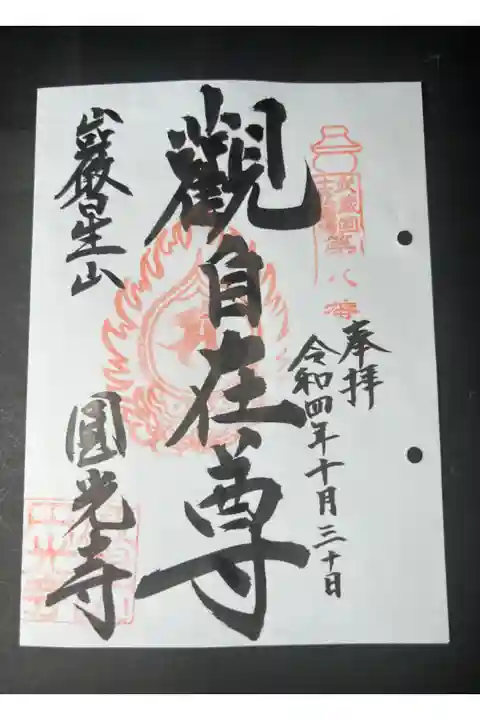 武蔵国第八番
奉拝
令和四年十月三十日
觀自在尊
巖星山
圓光寺